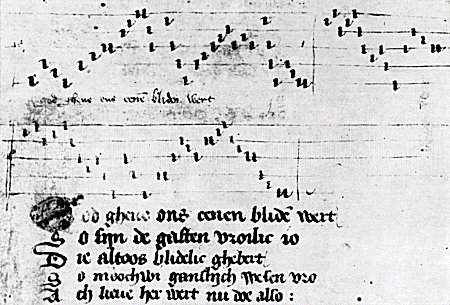 od gheue ons eenē blidē wert
od gheue ons eenen blidē wert
o sijn de gasten vroilic io
ie altoos blidelic ghebert
o moochdi ganslijch wesen vro
ch lieue her wert nu doe also :